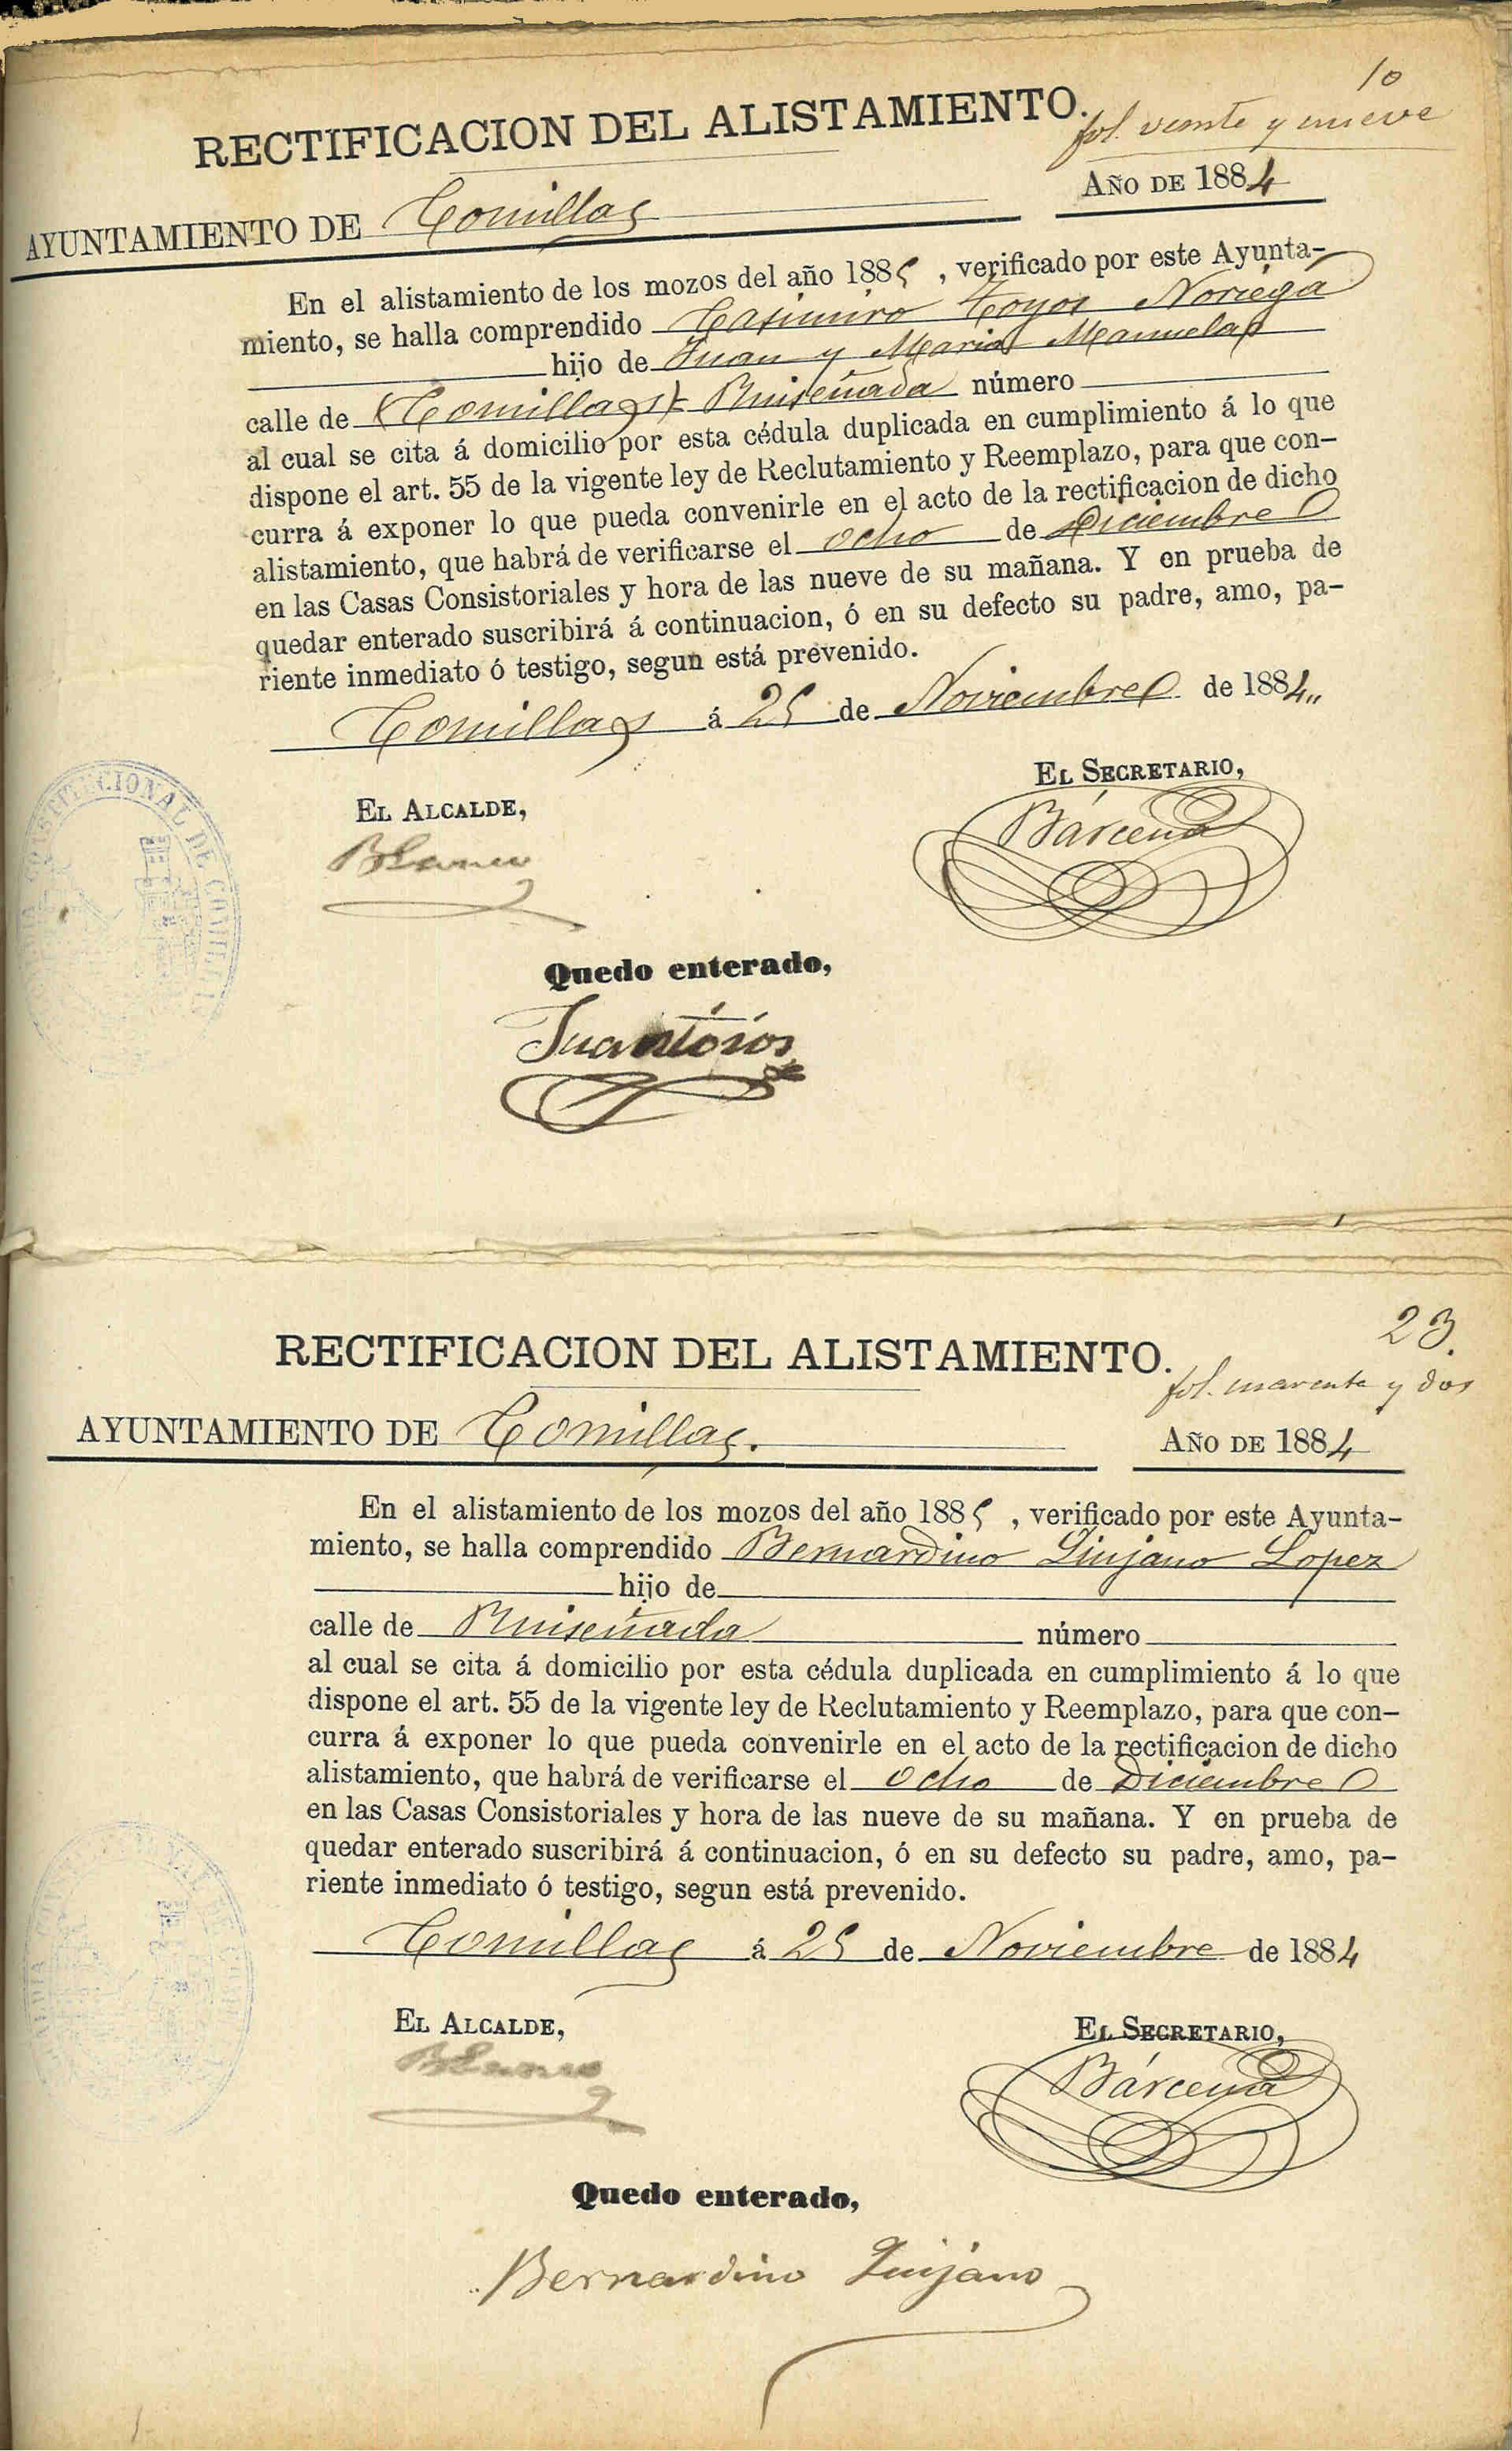 10
RECTIFICACION DEL ALISTAMIENTO.
fol. veinte y nueve
AÑO DE 1884
AYUNTAMIENTO DE Comillas
En el alistamiento de los mozos del año 1885, verificado por este Ayunta-
miento, se halla comprendido Casimiro Hoyos Noriega
hijo de Juan y Maria Manuela
calle de (Comillas) Ruiseñada número
al cual se cita á domicilio por esta cédula duplicada en cumplimiento á lo que
dispone el art. 55 de la vigente ley de Reclutamiento y Reemplazo, para que con-
curra á exponer lo que pueda convenirle en el acto de la rectificacion de dicho
alistamiento, que habrá de verificarse el ocho de Diciembre
en las Casas Consistoriales y hora de las nueve de su mañana. Y en prueba de
quedar enterado suscribirá á continuacion, ó en su defecto su padre, amo, pa-
riente inmediato ó testigo, segun está prevenido.
Comillas á 25 de Noviembre de 1884
EL ALCALDE,
EL SECRETARIO,
Blanco
Bárcena
CONSTITUCIONAL DE COMILLAS
Quedo enterado,
Juan
23.
RECTIFICACION DEL ALISTAMIENTO.
fol. cuarenta y dos
AYUNTAMIENTO DE Comillas.
AÑO DE 1884
En el alistamiento de los mozos del año 1885, verificado por este Ayunta-
miento, se halla comprendido Bernardino Quijano Lopez
hijo de
calle de Ruiseñada número
al cual se cita á domicilio por esta cédula duplicada en cumplimiento á lo que
dispone el art. 55 de la vigente ley de Reclutamiento y Reemplazo, para que con-
curra á exponer lo que pueda convenirle en el acto de la rectificacion de dicho
alistamiento, que habrá de verificarse el ocho de Diciembre
en las Casas Consistoriales y hora de las nueve de su mañana. Y en prueba de
quedar enterado suscribirá á continuacion, ó en su defecto su padre, amo, pa-
riente inmediato ó testigo, segun está prevenido.
Comillas á 25 de Noviembre de 1884
EL ALCALDE,
EL SECRETARIO,
Blanco
Bárcena
Quedo enterado,
Bernardino Quijano